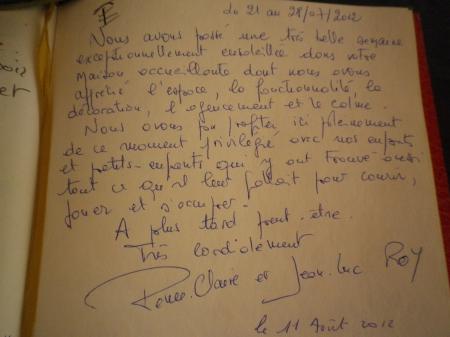 du 21 au 28/07/2012
Nous avons passé une très belle semaine
exceptionnellement ensoleillée dans votre
maison accueillante dont nous avons
apprécié l'espace, la fonctionnalité, la
décoration, l'agencement et le calme.
Nous avons pu profiter ici pleinement
de ce moment privilégié avec nos enfants
et petits-enfants qui y ont trouvé aussi
tout ce qu'il leur fallait pour courir,
jouer et s'occuper.
A plus tard peut-être.
Très cordialement
Claire et Jean-Luc ROY
le 11 Août 2012